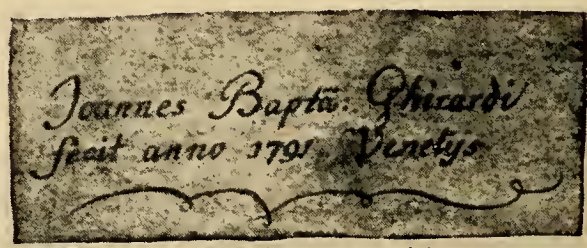 Joannes Baptã. Ghirardi
fecit anno 1791 Venetys